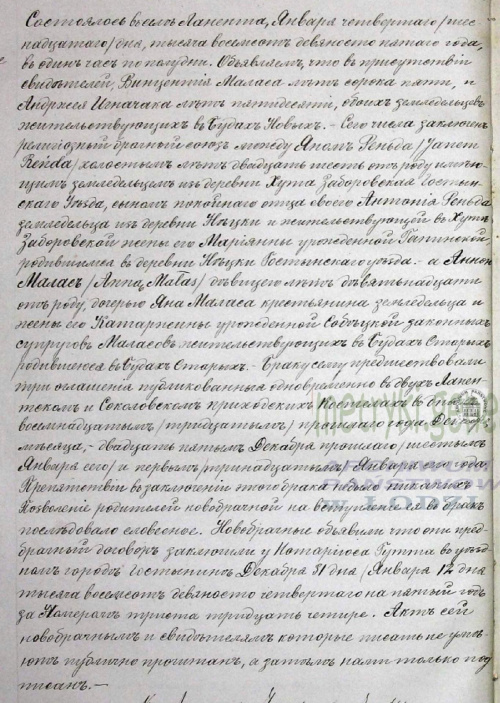 Состоялось въ селѣ Ланента, Января четвертаго /шес-
надцатаго/ дня, тысяча восемсотъ девяносто пятаго года,
въ одинъ часъ по полудни. Объявляемъ, что въ присутствіи
свидѣтелей, Винцентія Маласа лѣтъ сорока пяти, и
Андржея Игначака лѣтъ пятидесяти, обоихъ земледѣльцевъ
жительствующихъ въ Будахъ Новыхъ. – Сего числа заключенъ
религіозный брачный союзъ между Яномъ Реньда /Janem
Reńda/ холостымъ лѣтъ двадцать шесть отъ роду имѣю-
щимъ земледѣльцемъ изъ деревни Хута Заборовская Гостын-
скаго Уѣзда, сыномъ покойнаго отца своего Антонія Реньда
земледѣльца изъ деревни и жительствующей въ Хутѣ
Заборовской жены его Маріянны урожденной
родившимся въ деревни Гостынскаго уѣзда. – а Анною
Маласъ /Anną Małas/ дѣвицею лѣтъ девятнадцати
отъ роду, дочерью Яна Маласа крестьянина земледѣльца и
жены его Катаржины урожденной Собѣцкой законныхъ
супруговъ Маласовъ жительствующихъ въ Будахъ Старыхъ
родившеюся въ Будахъ Старыхъ. – Браку сему предшествовали
три оглашенія публикованныя одновременно въ двухъ Ланен-
тскомъ и Соколовскомъ приходскихъ Костелахъ въ дняхъ
восемнадцатымъ /тридцатымъ/ прошлаго года Декабря
мѣсяца, – двадцать пятымъ Декабря прошлаго /шестымъ
Января сего/ и первымъ /тринадцатымъ/ Января сего года.
Препятствіи въ заключеніи этого брака небыло никакихъ
Позволеніе родителей новобрачной на вступленіе ея въ бракъ
послѣдовало словесное. Новобрачные объявили что они пред-
брачный договоръ заключили у Нотаріюса въ уѣзд-
номъ городѣ Гостынинѣ Декабря 31 дня /Января 12 дня
тысяча восемсотъ девяносто четвертаго на пятый годъ
за Номеромъ триста тридцать четыре. Актъ сей
новобрачнымъ и свидѣтелямъ которые писать не умѣ-
ютъ публично прочитанъ, а затѣмъ нами только под-
писанъ. –